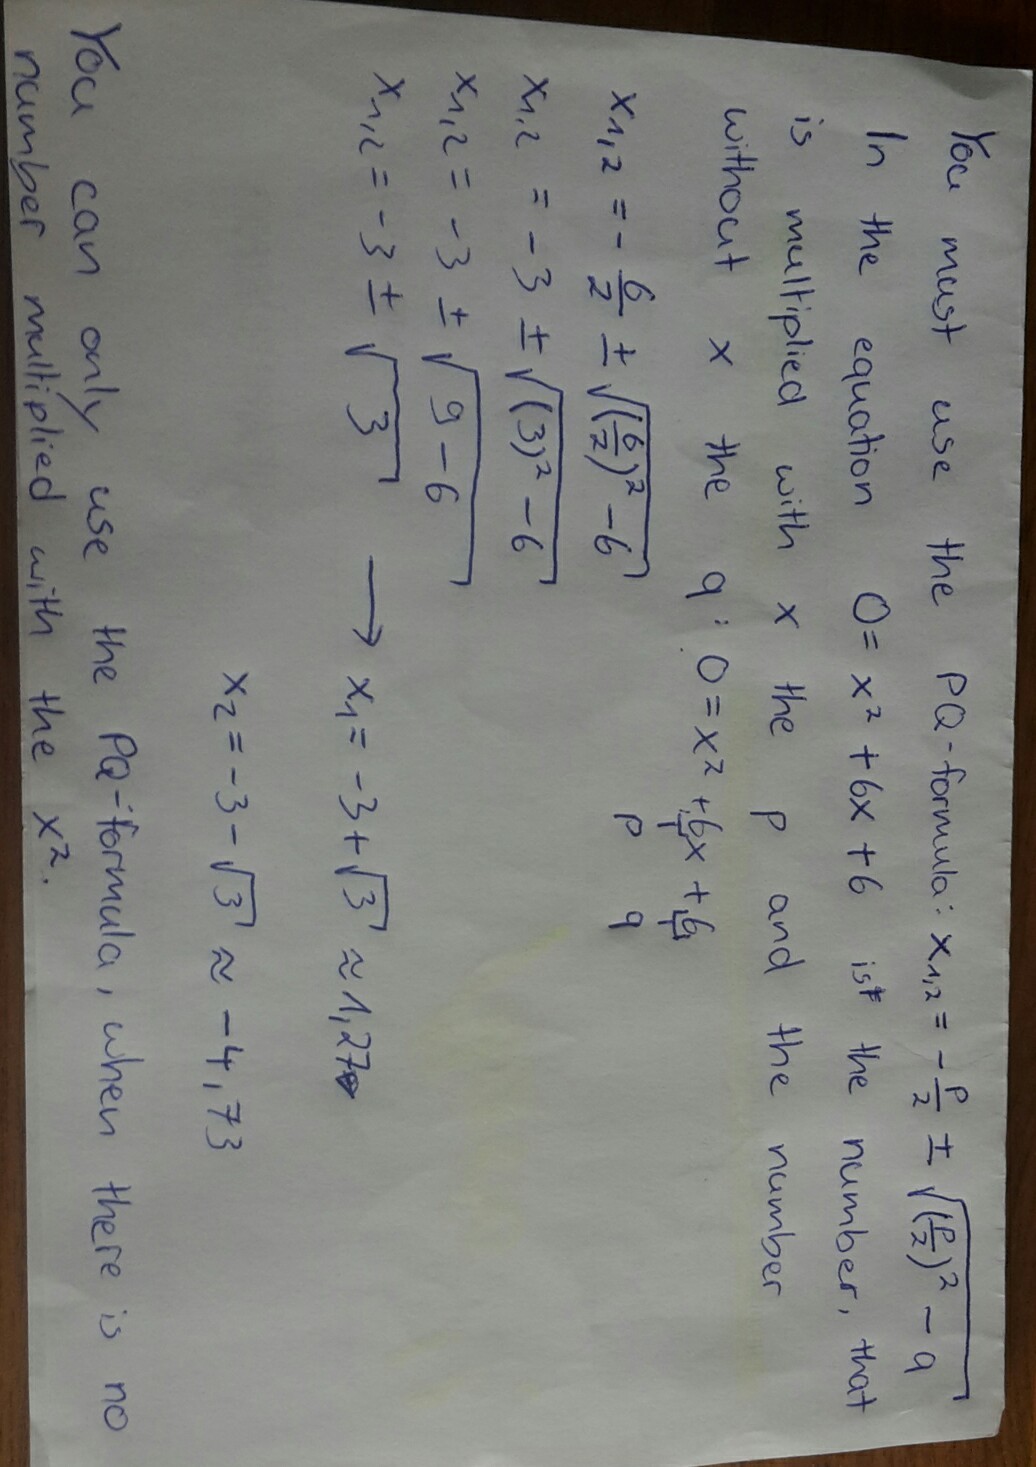 You must use the PQ-formula: x₁,₂ = -p/2 ± √((p/2)² - q)
In the equation 0 = x² + 6x + 6 is the number, that
is multiplied with x the p and the number
without x the q: 0 = x² + 6x + 6
p q
x₁,₂ = - 6/2 ± √((6/2)² - 6)
x₁,₂ = -3 ± √((3)² - 6)
x₁,₂ = -3 ± √(9 - 6)
x₁,₂ = -3 ± √3 → x₁ = -3 + √3 ≈ 1,27
x₂ = -3 - √3 ≈ -4,73
You can only use the PQ-formula, when there is no
number multiplied with the x².